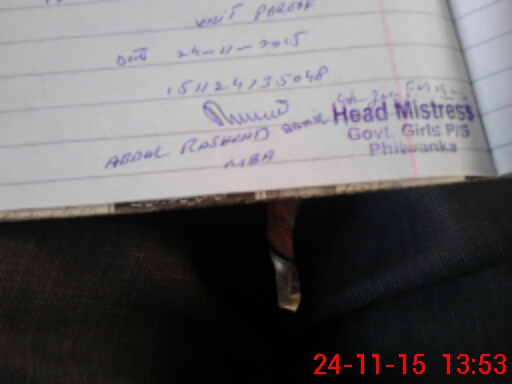 VISIT
24-11-2015
151124135048
ABDUL RASHEED
MEA
Head Mistress
Govt. Girls P/S
Philwanka
24-11-15 13:53